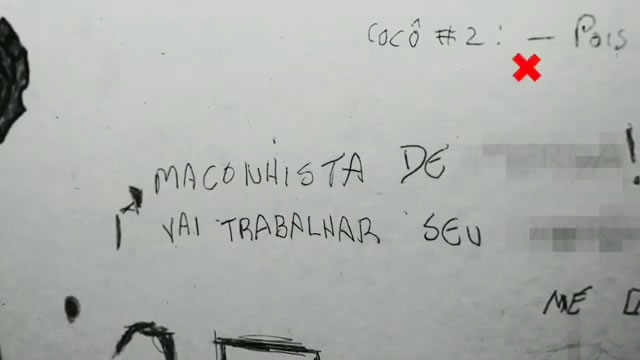 COCÔ #2: — POIS
MACONHISTA DE !
VAI TRABALHAR SEU
ME